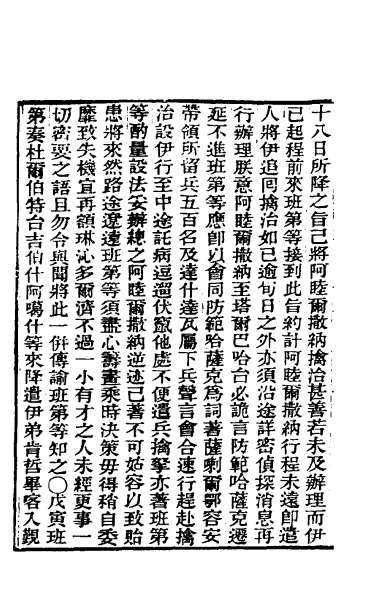 十八日所降之旨已將阿睦爾撒納擒治甚善若未及辦理而伊
已起程前來班第等接到此旨約計阿睦爾撒納行程未遠卽遣
人將伊追囘擒治如已逾旬日之外亦須沿途詳密偵探消息再
行辦理朕意阿睦爾撒納至塔爾巴哈台必詭言防範哈薩克遷
延不進班第等應卽以會同防範哈薩克爲詞著薩喇爾鄂容安
帶領所留兵五百名及達什達瓦屬下兵聲言會合速行趕赴擒
治設伊行至中途託病逗遛伏竄他處不便遣兵擒拏亦著班第
等酌量設法妥辦總之阿睦爾撒納逆迹已著不可姑容以致貽
患將來然路途遼遠班第等須盡心籌畫乘時決策毋得稍自委
靡致失機宜再額琳沁多爾濟不過一小有才之人未經更事一
切密要之語且勿令與聞將此一併傳諭班第等知之○戊寅班
第奏杜爾伯特台吉伯什阿噶什等來降遣伊弟肯哲畢客入覲